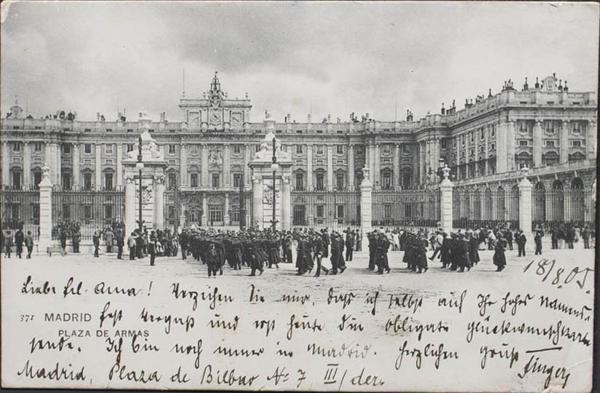 18/8.05
Liebe frl. Anna! Verzeihen Sie mir, dass ich selbst auf Ihr hohes Namens-
fest vergass und erst heute die obligate glückwunschkarte
371 MADRID
PLAZA DE ARMAS
sende. Ich bin noch immer in Madrid. herzlichen gruß
Madrid, Plaza de Bilbao No 7 III/der.